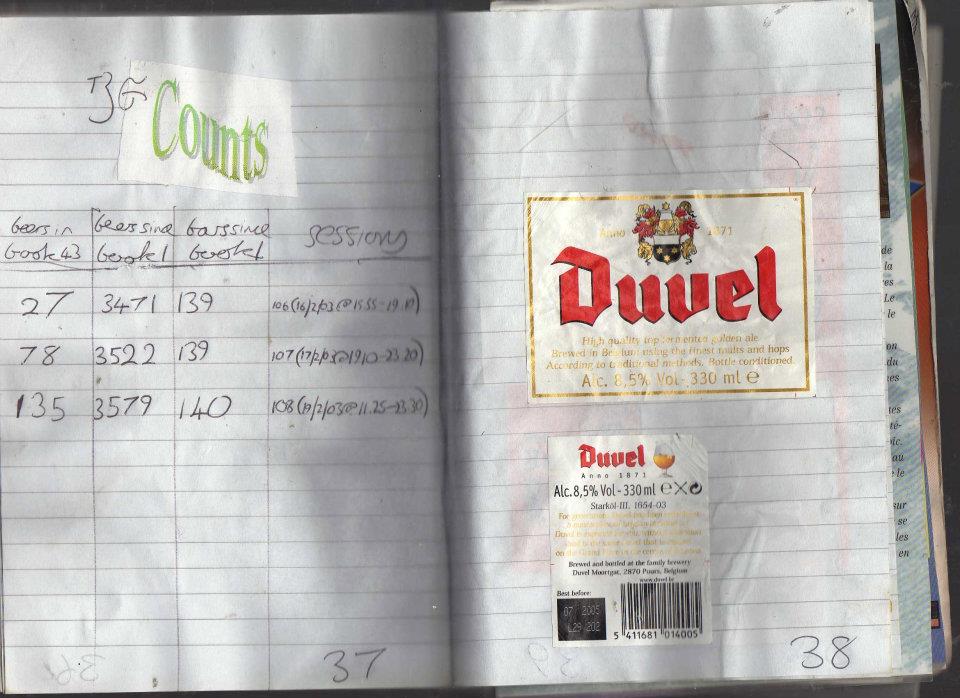 Counts
beers in book 43
beers since book 1
bars since book 1
sessions
27 3471 139 106 (16/2/03 @ 15.55-19.10)
78 3522 139 107 (17/2/03 @ 19.10-23.20)
135 3579 140 108 (19/2/03 @ 11.25-23.30)
37
Anno 1871
Duvel
High quality top fermented golden ale
Brewed in Belgium using the finest malts and hops
According to traditional methods. Bottle conditioned.
Alc. 8,5% Vol - 330 ml e
Duvel
Anno 1871
Alc. 8,5% Vol - 330 ml e
Starköl-III. 1654-03
Brewed and bottled at the family brewery
Duvel Moortgat, 2870 Puurs, Belgium
www.duvel.be
Best before:
07 2005
L29 202
5 411681 014005
38